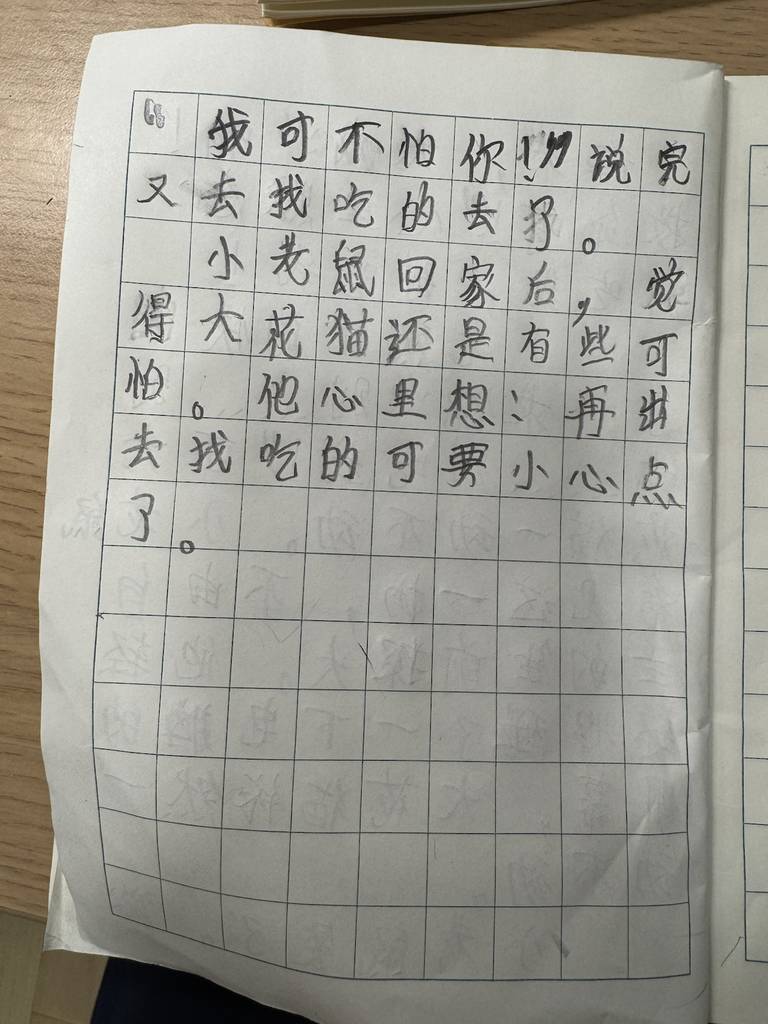 “我可不怕你!”说完
又去找吃的去了。
小老鼠回家后,觉
得大花猫还是有些可
怕。他心里想:再出
去找吃的可要小心点
了。